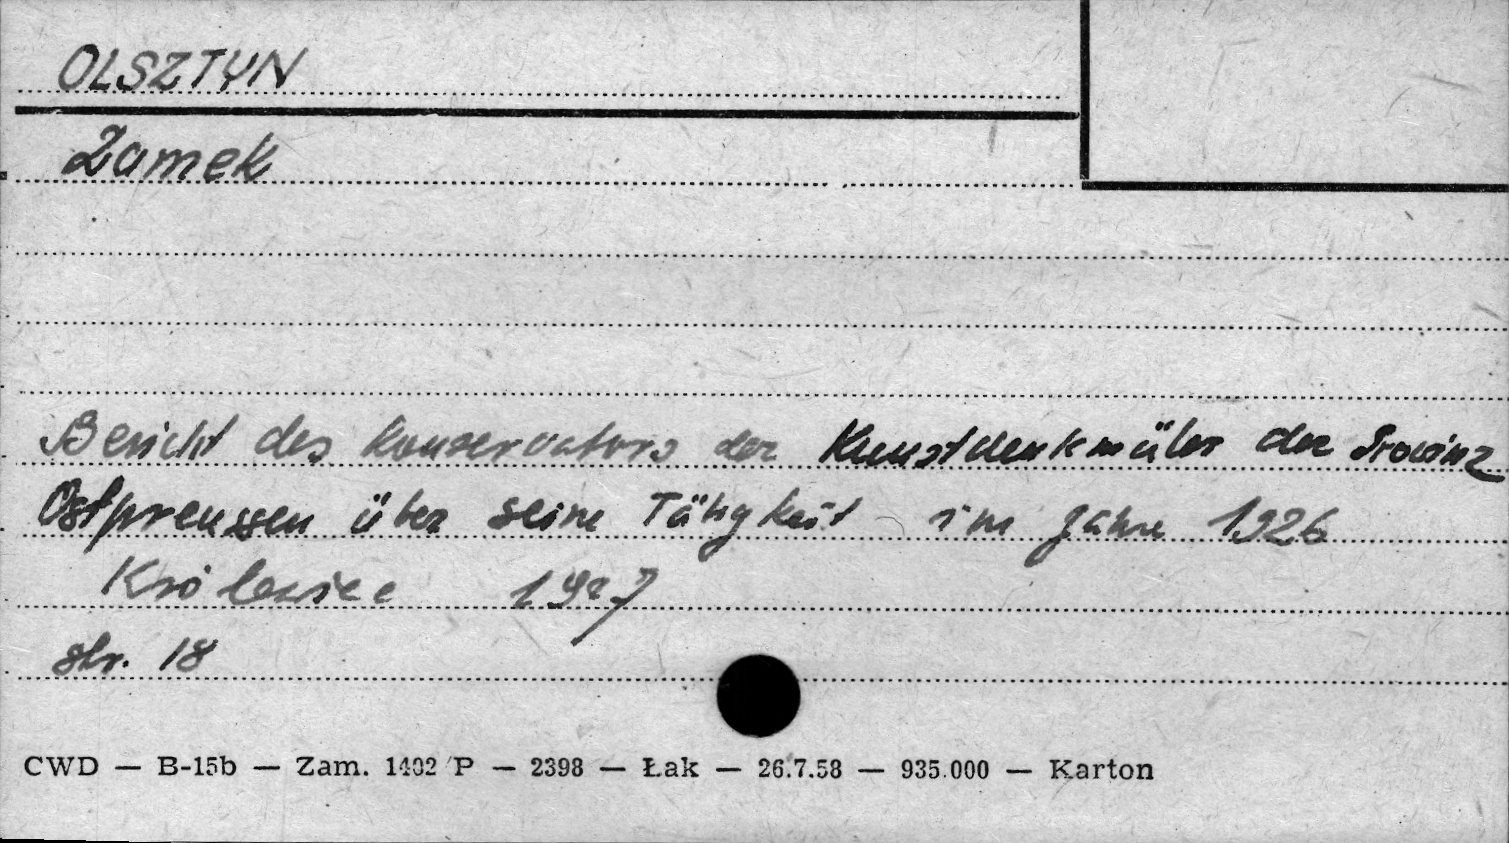 OLSZTYN
Zamek
Bericht des Konservators der Kunstdenkmäler der Provinz
Ostpreussen über seine Tätigkeit im Jahre 1926
Królewiec 1927
str. 18
CWD — B-15b — Zam. 1402/P — 2398 — Łak — 26.7.58 — 935.000 — Karton